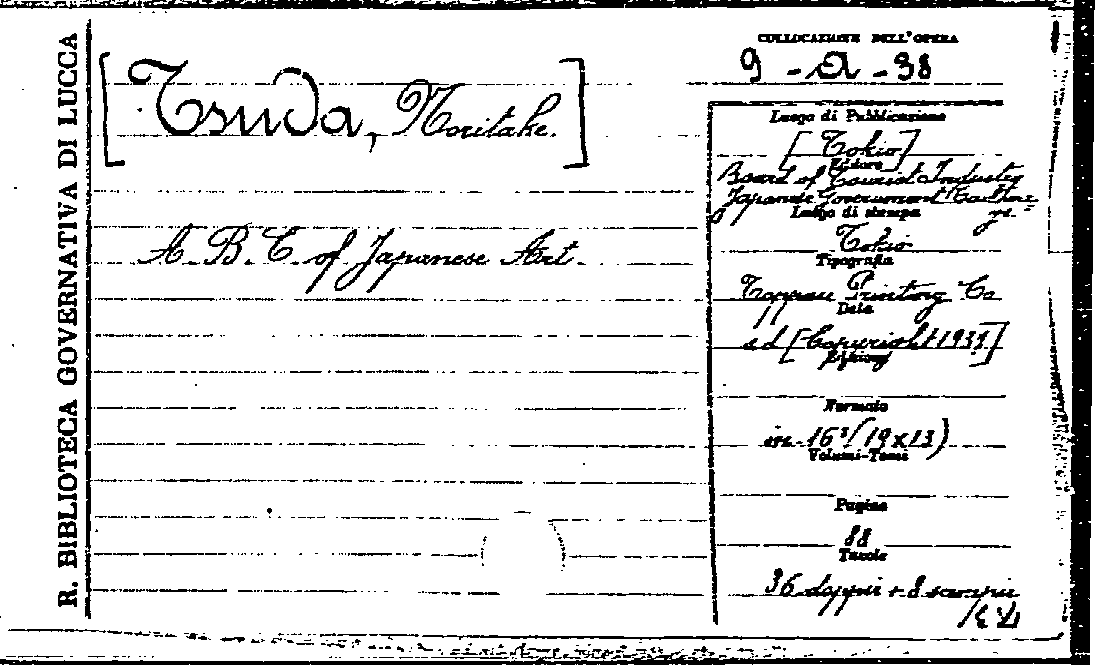 R. BIBLIOTECA GOVERNATIVA DI LUCCA
[Tsuda, Noritake.]
A. B. C. of Japanese Art.
COLLOCAZIONE DELL'OPERA
9 - A - 38
Luogo di Pubblicazione
[Tokio]
Editore
Board of Tourist Industry
Japanese Government
Luogo di stampa
Tokio
Tipografia
Toppan Printing Co
Data
s. d. [Copyright 1937]
Edizione
Formato
in-16° (19x13)
Volumi-Tomi
Pagine
88
Tavole
36 doppie + 8